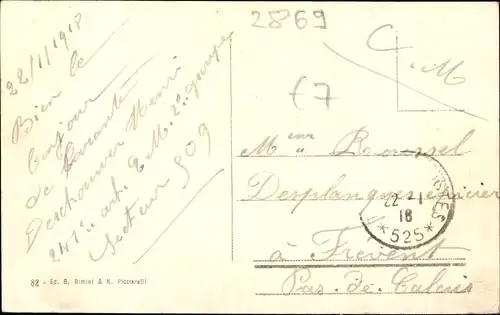 2869
C. M
€7
22/1/1918
Bien le
bonjour
de
Deschouwer Henri
241e art. E. M. 2e groupe
Secteur 509
Meur Roussel
Desplanques épicier
à Frévent
Pas. de. Calais
22 - 1
18
*525*
82 - Ed. B. Rimini & N. Piccarelli